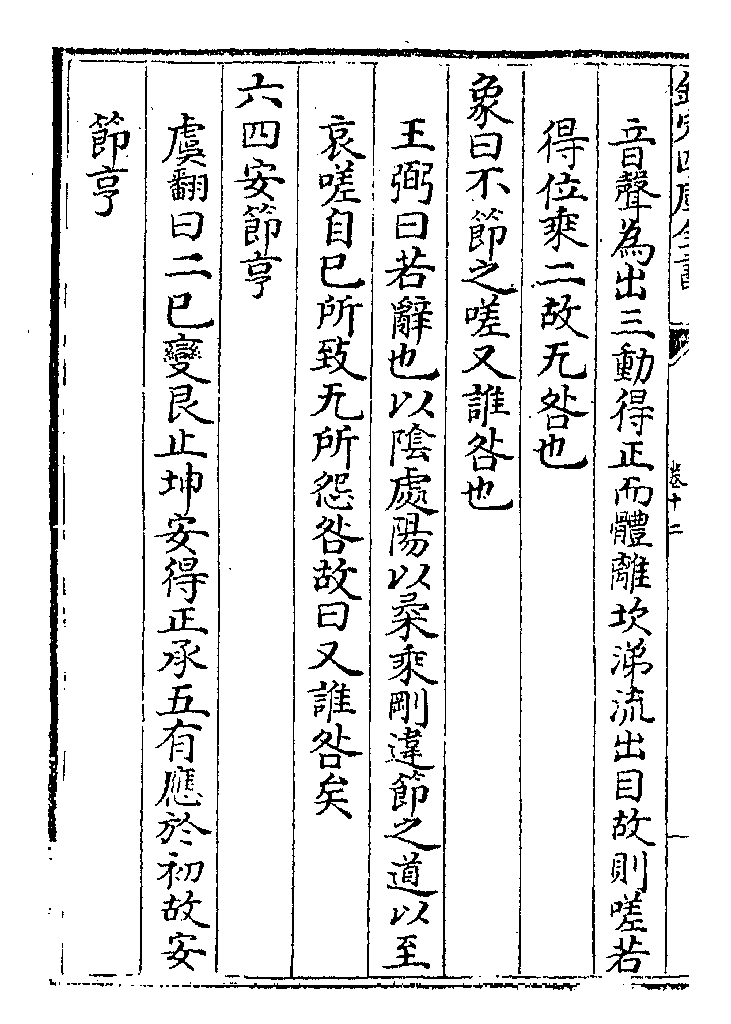 欽定四庫全書 卷十二
音聲為出三動得正而體離坎涕流出目故則嗟若
得位乘二故无咎也
象曰不節之嗟又誰咎也
王弼曰若辭也以陰處陽以柔乘剛違節之道以至
哀嗟自已所致无所怨咎故曰又誰咎矣
六四安節亨
虞翻曰二已變艮止坤安得正承五有應於初故安
節亨